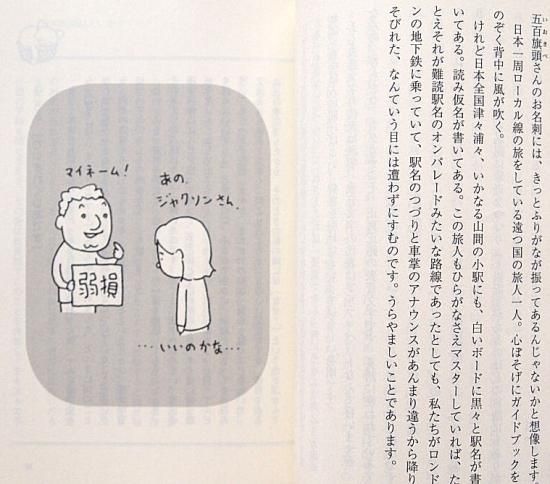 いおきべ
五百旗頭さんのお名刺には、きっとふりがなが振ってあるんじゃないかと想像します。
日本一周ローカル線の旅をしている遠つ国の旅人一人。心ぼそげにガイドブックを
のぞく背中に風が吹く。
けれど日本全国津々浦々、いかなる山間の小駅にも、白いボードに黒々と駅名が書
いてある。読み仮名が書いてある。この旅人もひらがなさえマスターしていれば、た
とえそれが難読駅名のオンパレードみたいな路線であったとしても、私たちがロンド
ンの地下鉄に乗っていて、駅名のつづりと車掌のアナウンスがあんまり違うから降り
そびれた、なんていう目には遭わずにすむのです。うらやましいことであります。
マイネーム!
あの、
ジャクソンさん、
弱損
…いいのかな…